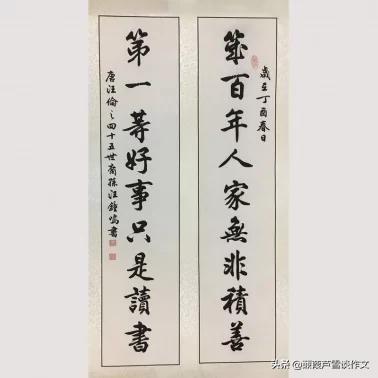 歲在丁酉春日
幾百年人家無非積善
第一等好事只是讀書
唐汪倫之四十五世裔孫汪鐘鳴書
头条 @芦雪谈作文